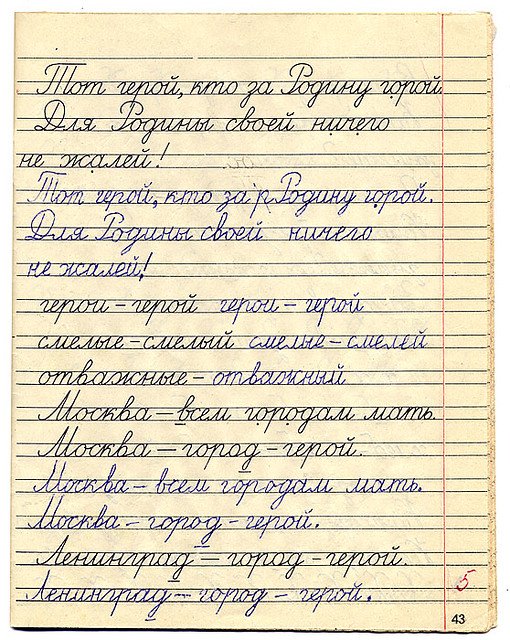 Тот герой, кто за Родину горой
Для Родины своей ничего
не жалей!
Тот герой, кто за р Родину горой.
Для Родины своей ничего
не жалей!
герои – герой герои – герой
смелые – смелый смелые – смелей
отважные – отважный
Москва – всем городам мать.
Москва – город – герой.
Москва – всем городам мать.
Москва – город – герой.
Ленинград – город – герой.
Ленинград – город – герой.
5
43